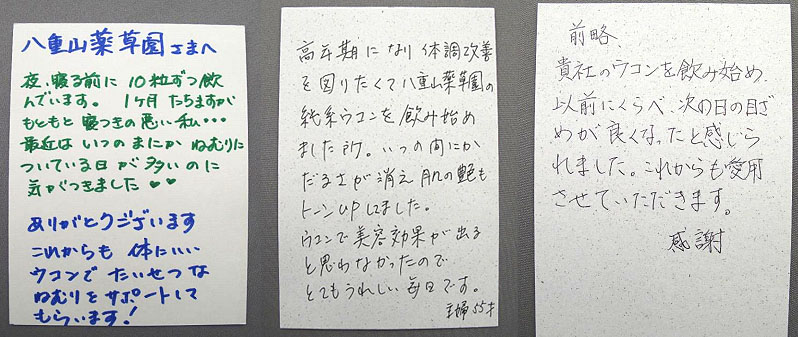 八重山薬草園さまへ
夜、寝る前に10粒ずつ飲
んでいます。1ヶ月たちますが
もともと寝つきの悪い私・・・
最近はいつのまにかねむりに
ついている日が多いのに
気がつきました♥♥
ありがとうございます
これからも体にいい
ウコンでたいせつな
ねむりをサポートして
もらいます!
高年期になり体調改善
を図りたくて八重山薬草園の
純系ウコンを飲み始め
ました所。いつの間にか
だるさが消え肌の艶も
トーンUPしました。
ウコンで美容効果が出る
と思わなかったので
とてもうれしい毎日です。
主婦55才
前略
貴社のウコンを飲み始め、
以前にくらべ、次の日の目ざ
めが良くなったと感じら
れました。これからも愛用
させていただきます。
感謝